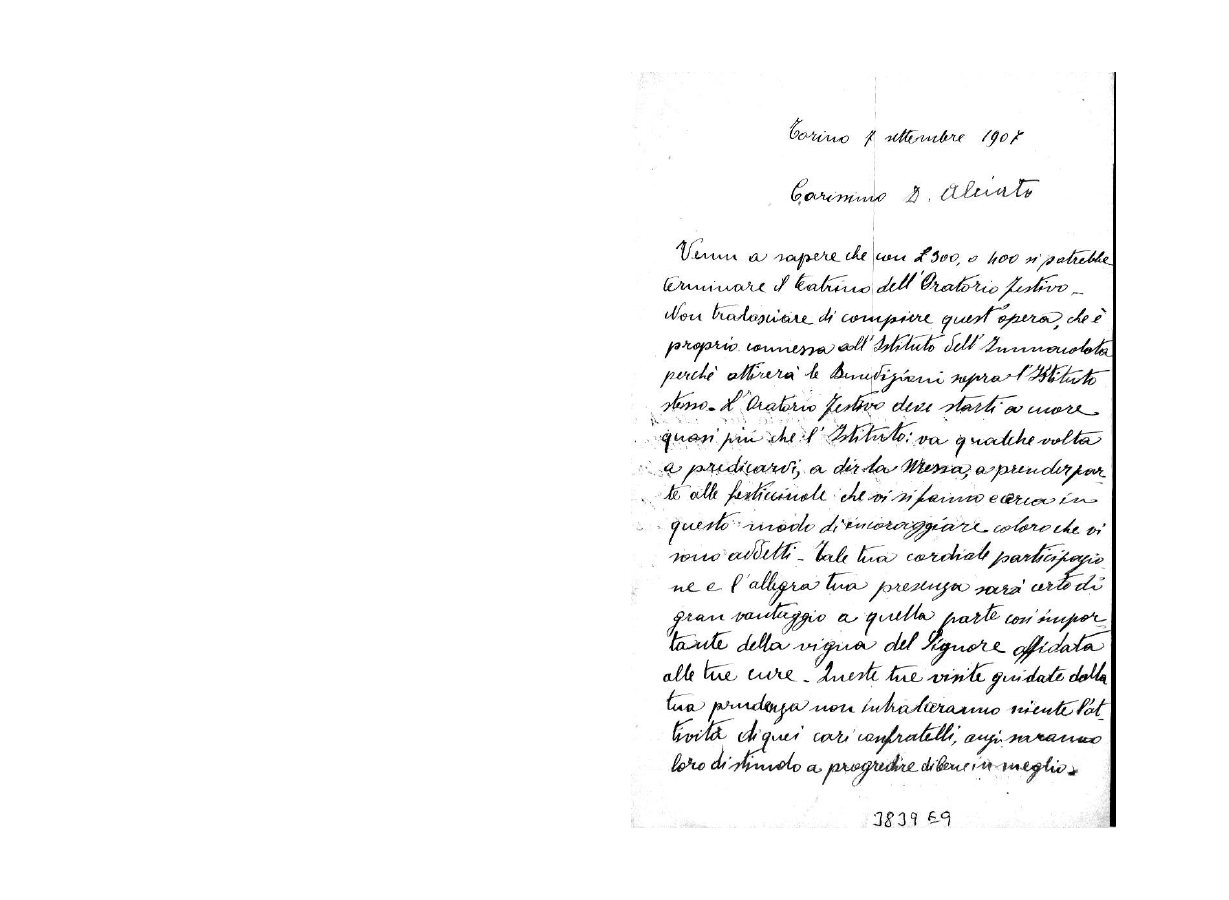 Torino 7 settembre 1907
Carissimo D. Alciato
Venni a sapere che con £300, o 400 si potrebbe
terminare il teatrino dell'Oratorio festivo_
Non tralasciare di compiere quest'opera, che è
proprio connessa all'Istituto dell'Immacolata
perchè attirerà le Benedizioni sopra l'Istituto
stesso_ L'Oratorio festivo deve starti a cuore
quasi più che l'Istituto: va qualche volta
a predicarvi, a dir la Messa, a prender par-
te alle festicciuole che vi si fanno e cerca in
questo modo di incoraggiare coloro che vi
sono addetti_ Tale tua cordiale participazio
ne e l'allegra tua presenza sarà certo di
gran vantaggio a quella parte così impor-
tante della vigna del Signore affidata
alle tue cure_ Queste tue visite guidate dalla
tua prudenza non intralceranno niente l'at-
tività di quei cari confratelli, anzi saranno
loro di stimolo a progredire di bene in meglio.
3839 E9